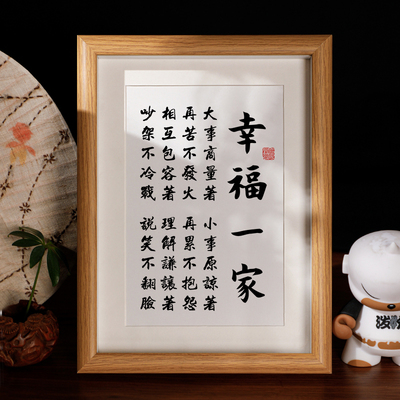 幸福一家
大事商量著 小事原諒著
再苦不發火 再累不抱怨
相互包容著 理解謙讓著
吵架不冷戰 說笑不翻臉